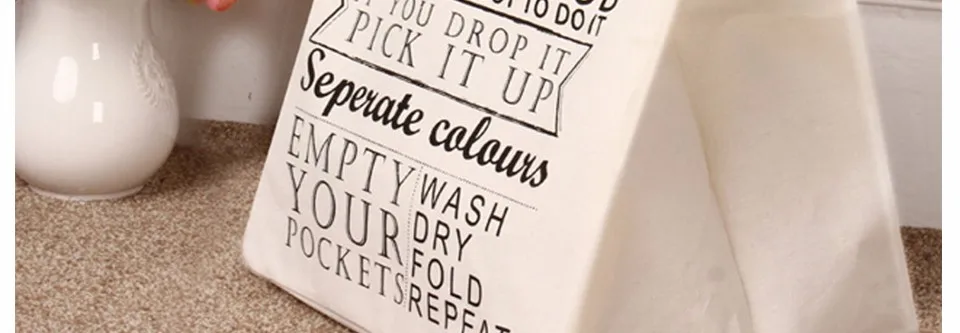 TO DO IT
YOU DROP IT
PICK IT UP
Seperate colours
EMPTY
YOUR
POCKETS
WASH
DRY
FOLD
REPEAT